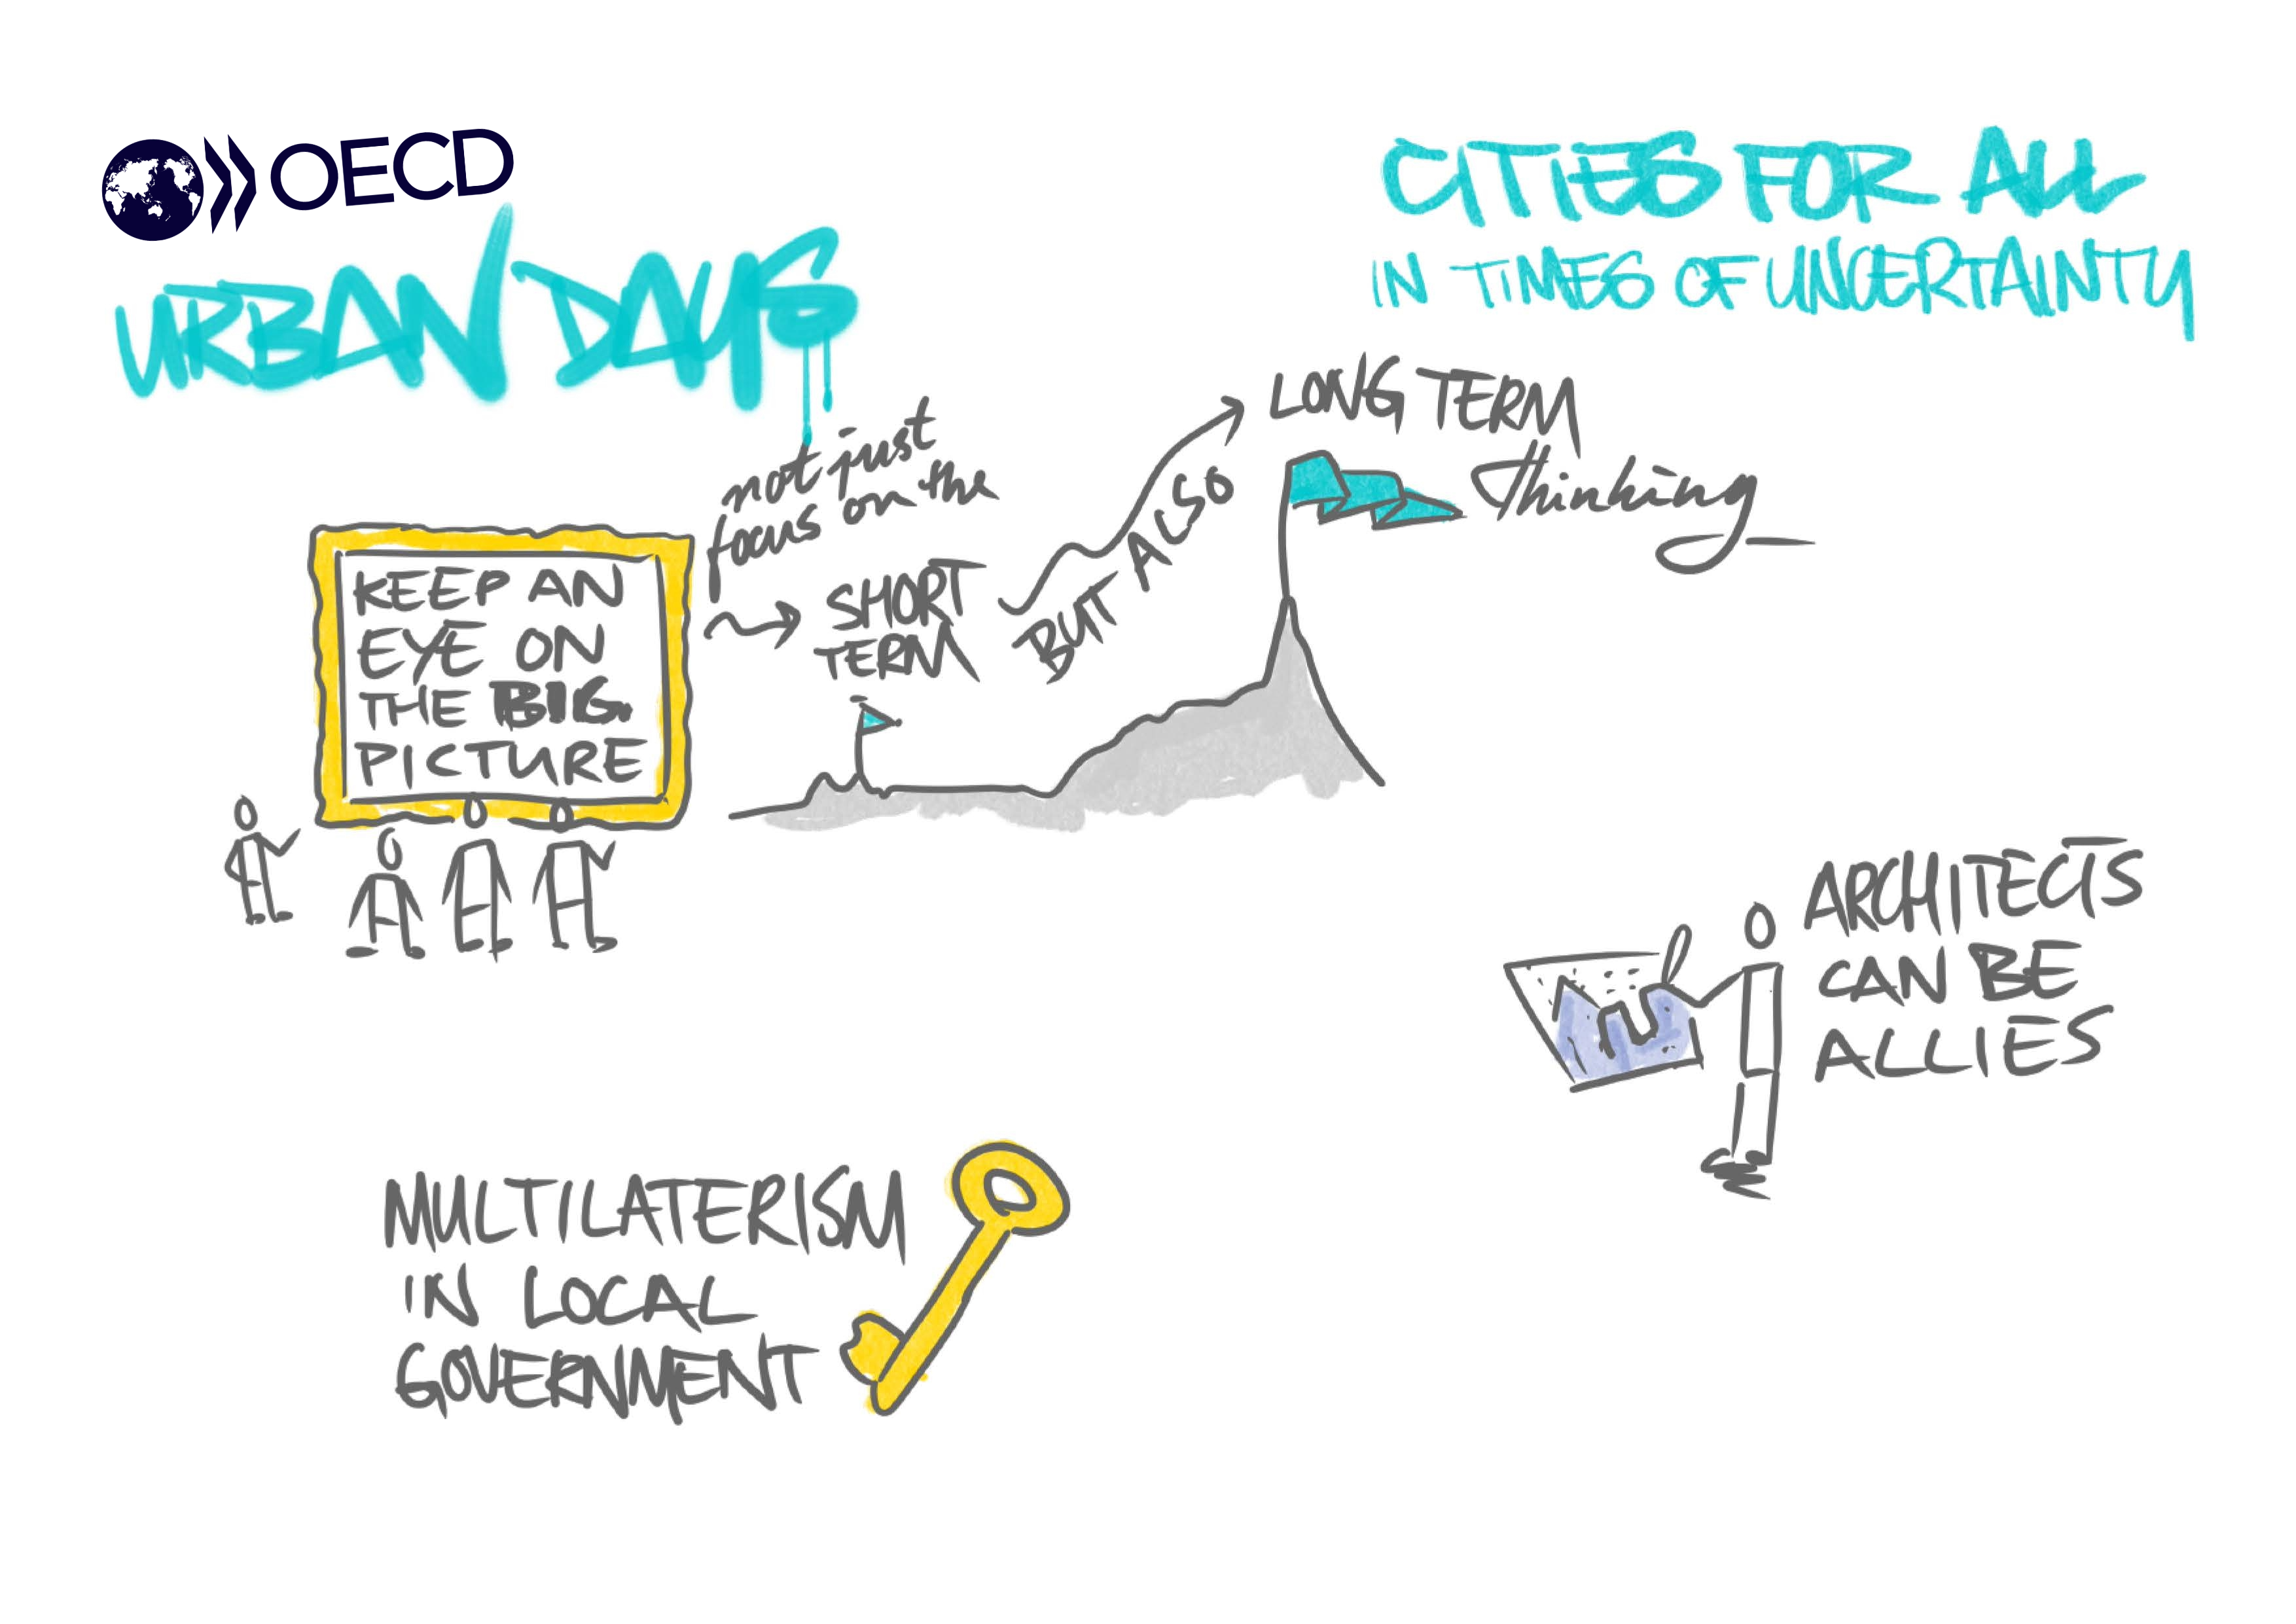 OECD
URBAN DAYS
CITIES FOR ALL
IN TIMES OF UNCERTAINTY
KEEP AN
EYE ON
THE BIG.
PICTURE
not just
focus on the
SHORT
TERM
BUT ALSO
LONG TERM
thinking
ARCHITECTS
CAN BE
ALLIES
MULTILATERISM
IN LOCAL
GOVERNMENT